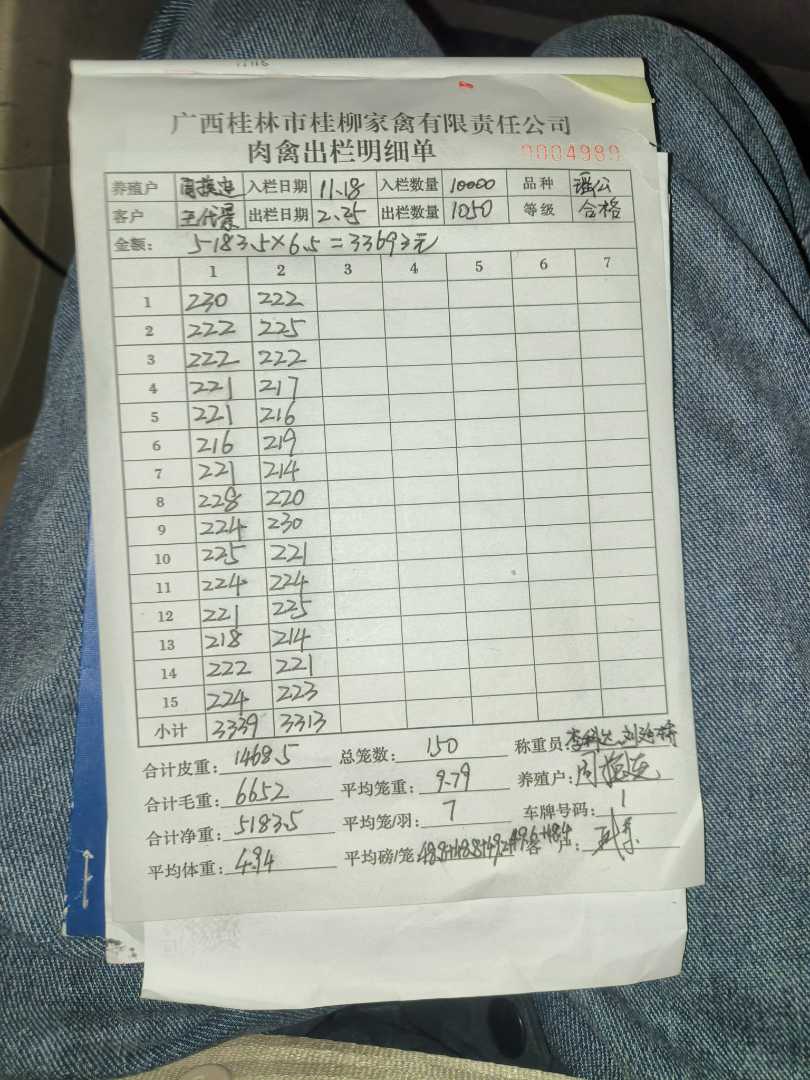 广西桂林市桂柳家禽有限责任公司
肉禽出栏明细单 0004989
养殖户 周振连 入栏日期 11.18 入栏数量 10000 品种 瑶公
客户 王代景 出栏日期 2.25 出栏数量 1050 等级 合格
金额: 5183.5×6.5=33693元
1 2 3 4 5 6 7
1 230 222
2 222 225
3 222 222
4 221 217
5 221 216
6 216 219
7 221 214
8 228 220
9 224 230
10 225 221
11 224 224
12 221 225
13 218 214
14 222 221
15 224 223
小计 3339 3313
合计皮重: 1468.5 总笼数: 150 称重员:
合计毛重: 6652 平均笼重: 9.79 养殖户: 周振连
合计净重: 5183.5 平均笼/羽: 7 车牌号码: 1
平均体重: 4.94 平均磅/笼: 48.9+48.8+49.2+49.6+48.4 客户: